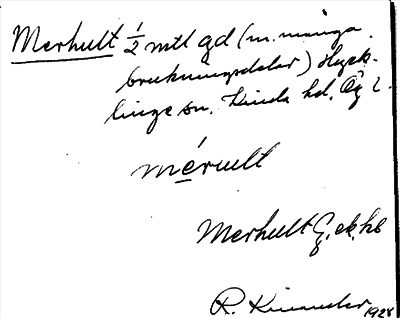 Merhult ½ mtl gd (m. många
brukningsdelar) Hyck-
linge sn. Kinda hd. Ög l.
mérult
Merhult G. ek. kb
R. Kinander 1928